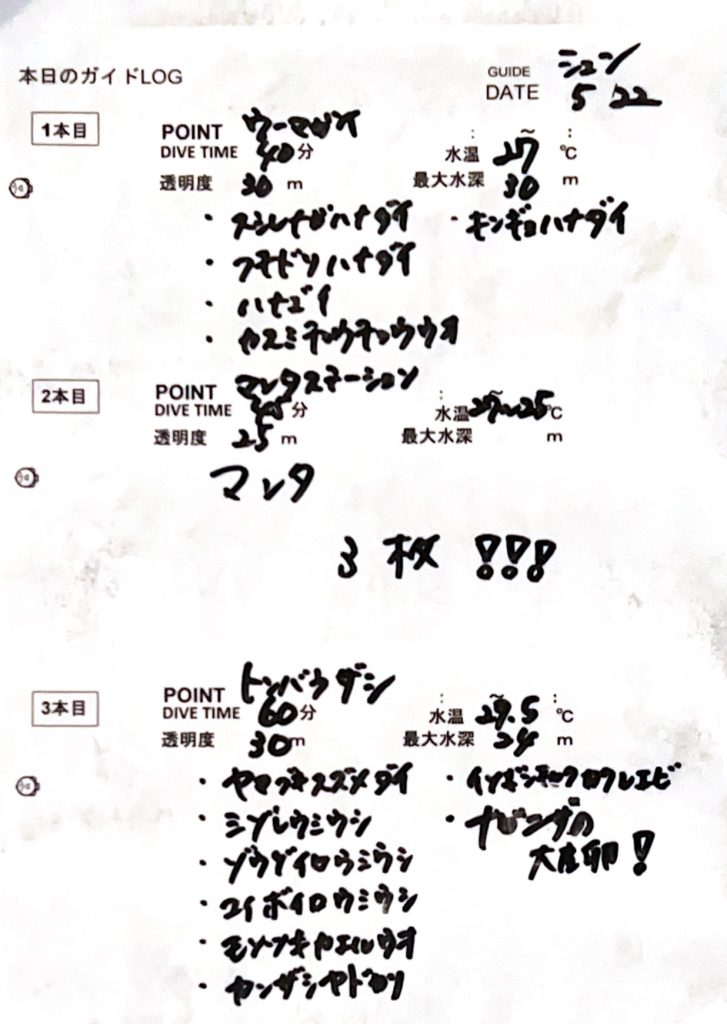 本日のガイドLOG
GUIDE シュン
DATE 5 22
1本目
POINT ウーマガイ
DIVE TIME 40分
水温 27 ℃
透明度 30 m
最大水深 30 m
・スジハナダイ
・キンギョハナダイ
・フチドリハナダイ
・ハナゴイ
・カスミチョウチョウウオ
2本目
POINT マンタステーション
DIVE TIME 分
水温 27~25℃
透明度 25 m
最大水深 m
マンタ
3枚 !!!
3本目
POINT トンバラダシ
DIVE TIME 60分
水温 29.5 ℃
透明度 30m
最大水深 24 m
・ヤマブキスズメダイ
・イソギンチャクカクレエビ
・ミゾレウミウシ
・ゾウゲイロウミウシ
・コイボイロウミウシ
・モンツキカエルウオ
・カンザシヤドカリ
・の
大産卵!